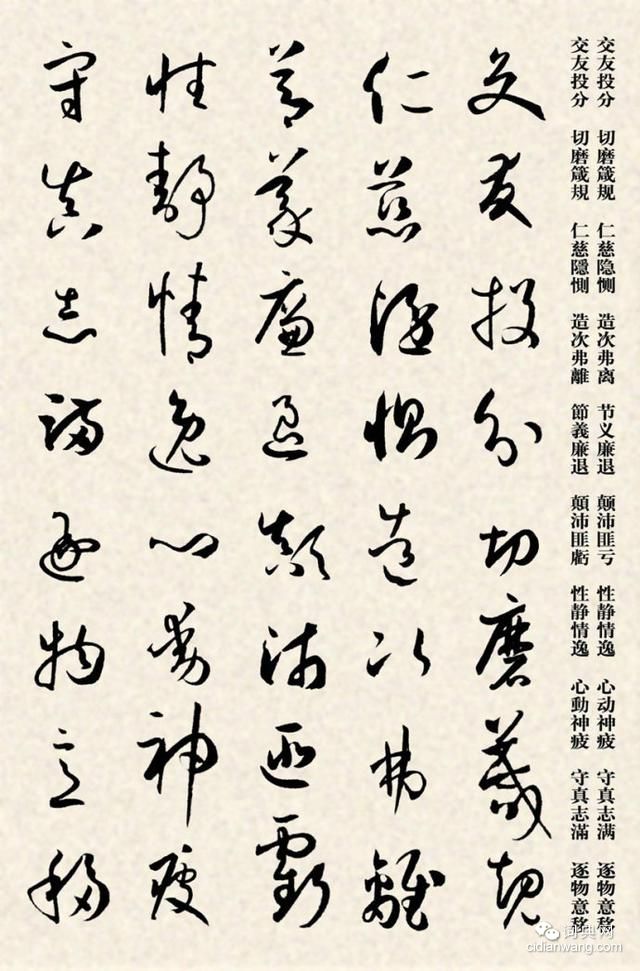 交友投分 切磨箴规 仁慈隐恻 造次弗离 节义廉退 颠沛匪亏 性静情逸 心动神疲 守真志满 逐物意移
交友投分 切磨箴規 仁慈隱惻 造次弗離 節義廉退 顛沛匪虧 性静情逸 心動神疲 守真志滿 逐物意移
交友投分切磨箴規
仁慈隱惻造次弗離
節義廉退顛沛匪虧
性静情逸心動神疲
守真志滿逐物意移
词典网
cidianwang.com